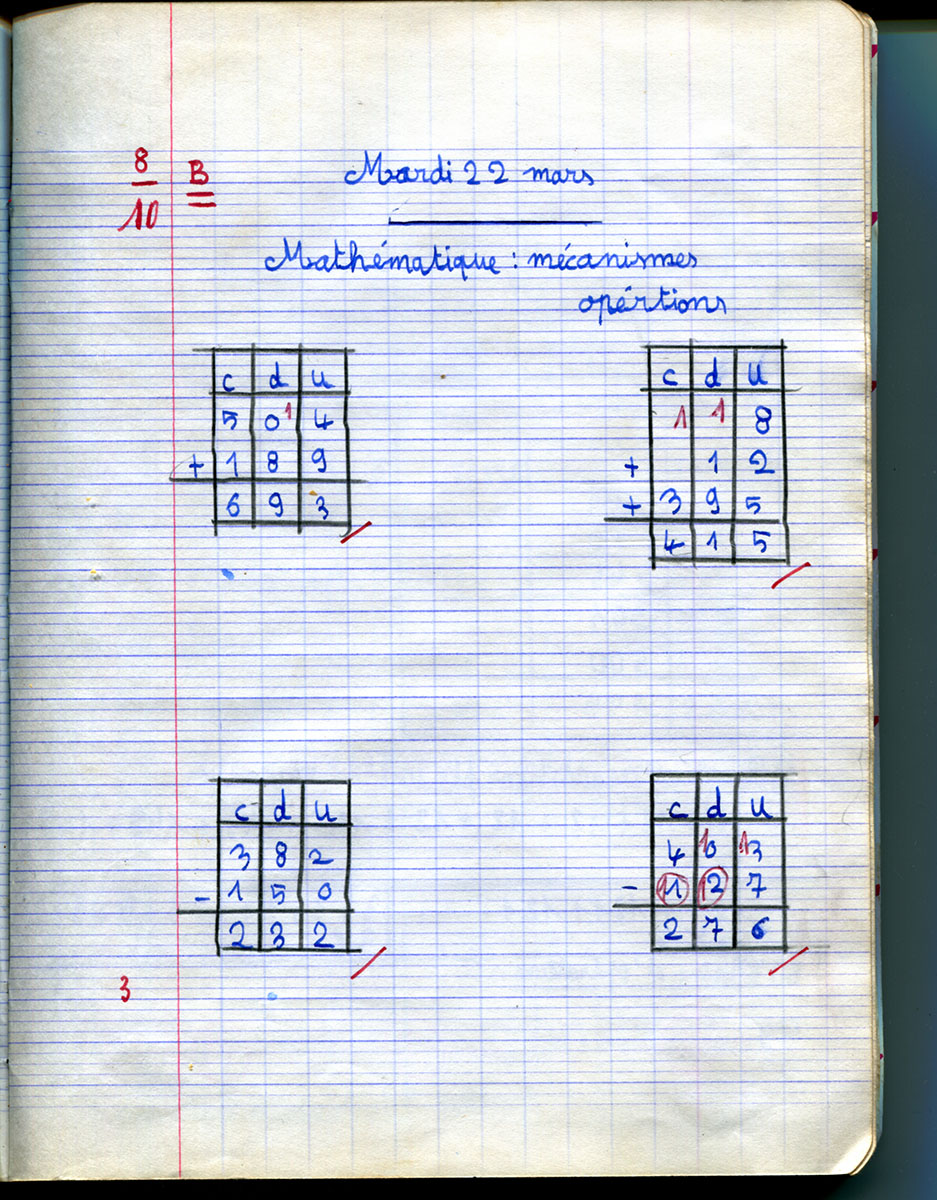 8 B Mardi 22 mars
10
Mathématique : mécanismes
opértions
c d u
5 0 1 4
+ 1 8 9
6 9 3
c d u
1 1 8
+ 1 2
+ 3 9 5
4 1 5
c d u
3 8 2
- 1 5 0
2 3 2
c d u
4 10 13
- 11 12 7
2 7 6
3